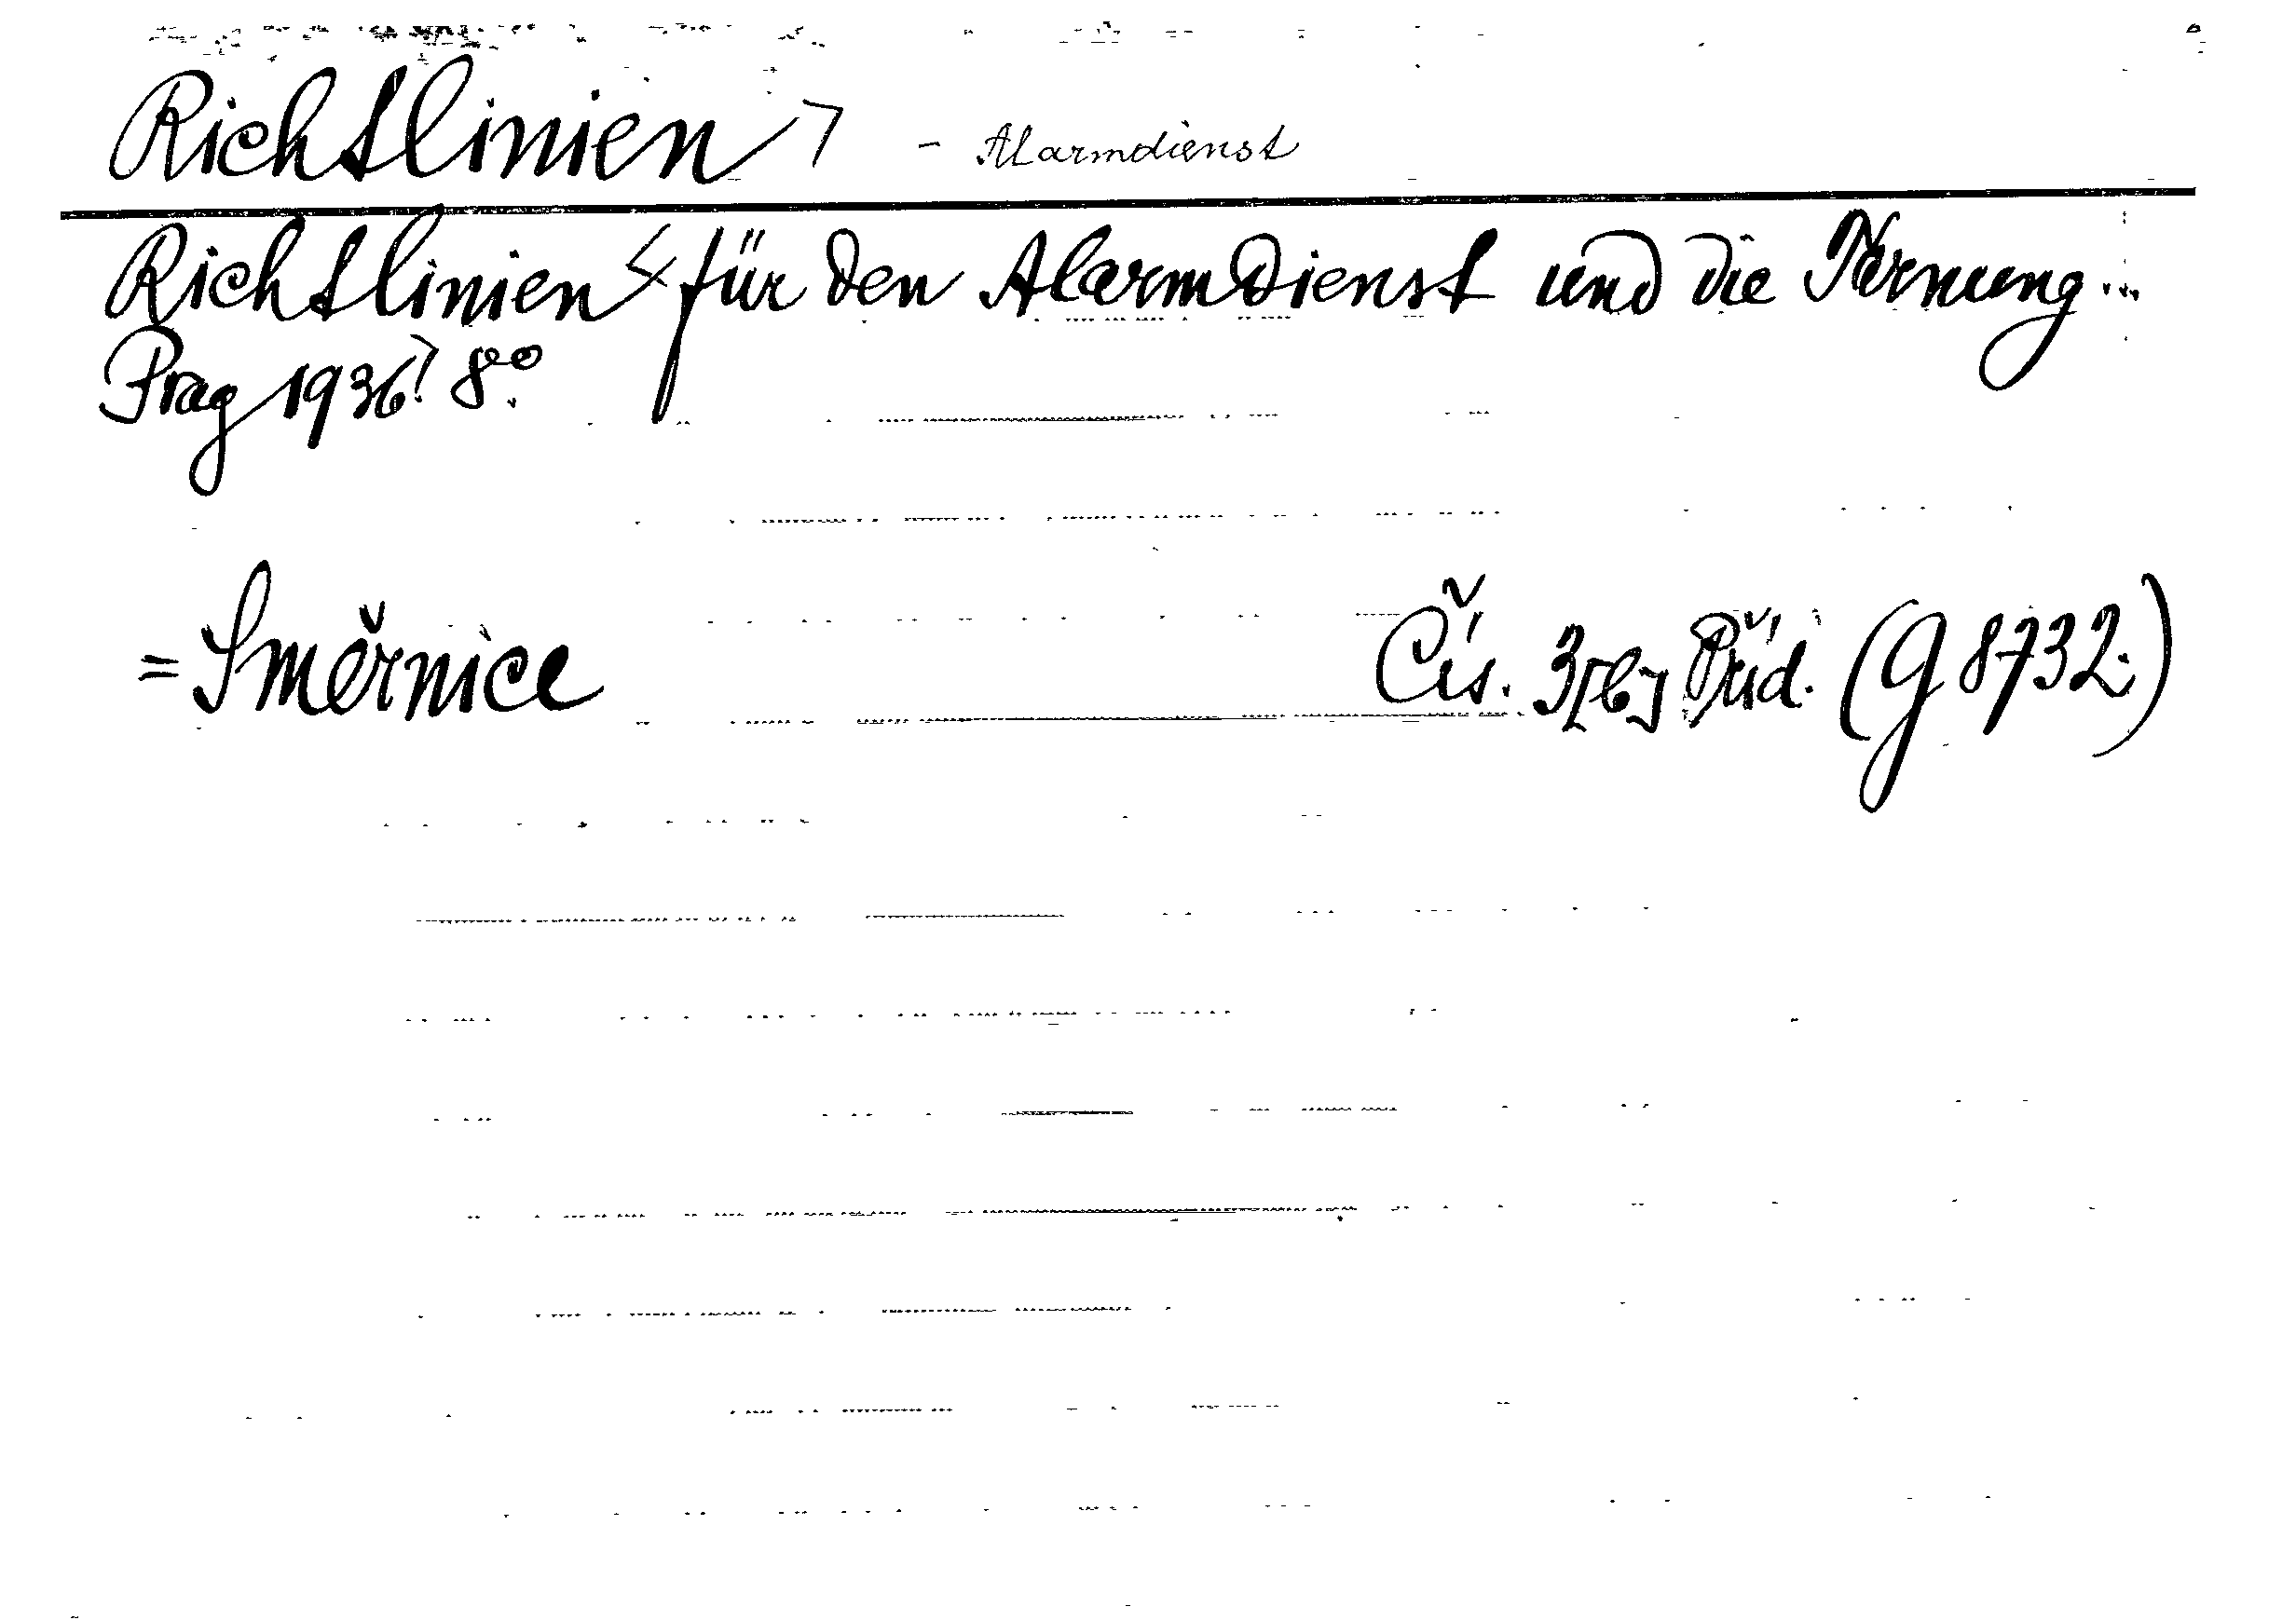 Richtlinien - Alarmdienst
Richtlinien für den Alarmdienst und die Tarnung...
Prag 1936. 8°.
= Směrnice Čís. 3[6] Příd. (G 8732.)